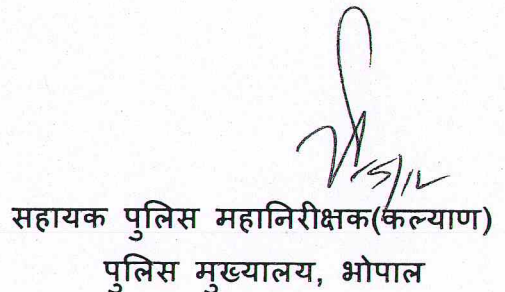 सहायक पुलिस महानिरीक्षक(कल्याण)
पुलिस मुख्यालय, भोपाल